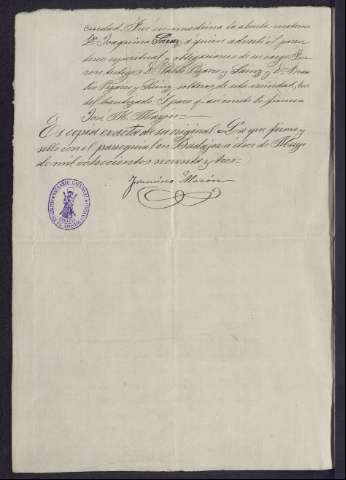 ciudad. Fue su madrina la abuela materna
Dª Joaquina Sanz, a quien advertí el paren-
tesco espiritual y obligaciones de su cargo. Fue-
ron testigos D. Pablo Pizarro y Sanz y D.
Pizarro y Sanz, solteros, de esta vecindad, tios
del bautizado. Y para que conste lo firmo
José Mª Mayor
Es copia exacta de su original. La que firmo y
sello con el parroquial en Badajoz a dos de Mayo
de mil ochocientos noventa y tres.
Francisco